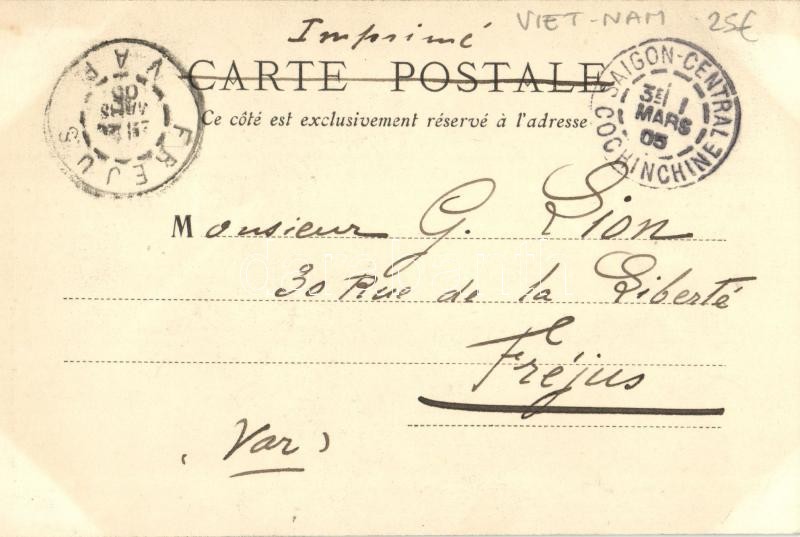 VIET-NAM 25€
Imprimé
CARTE POSTALE
Ce côté est exclusivement réservé à l'adresse
FREJUS
VAR
05
SAIGON-CENTRAL
3E/ 1
MARS
05
COCHINCHINE
Monsieur G. Lion
30 Rue de la Liberté
Fréjus
(Var)